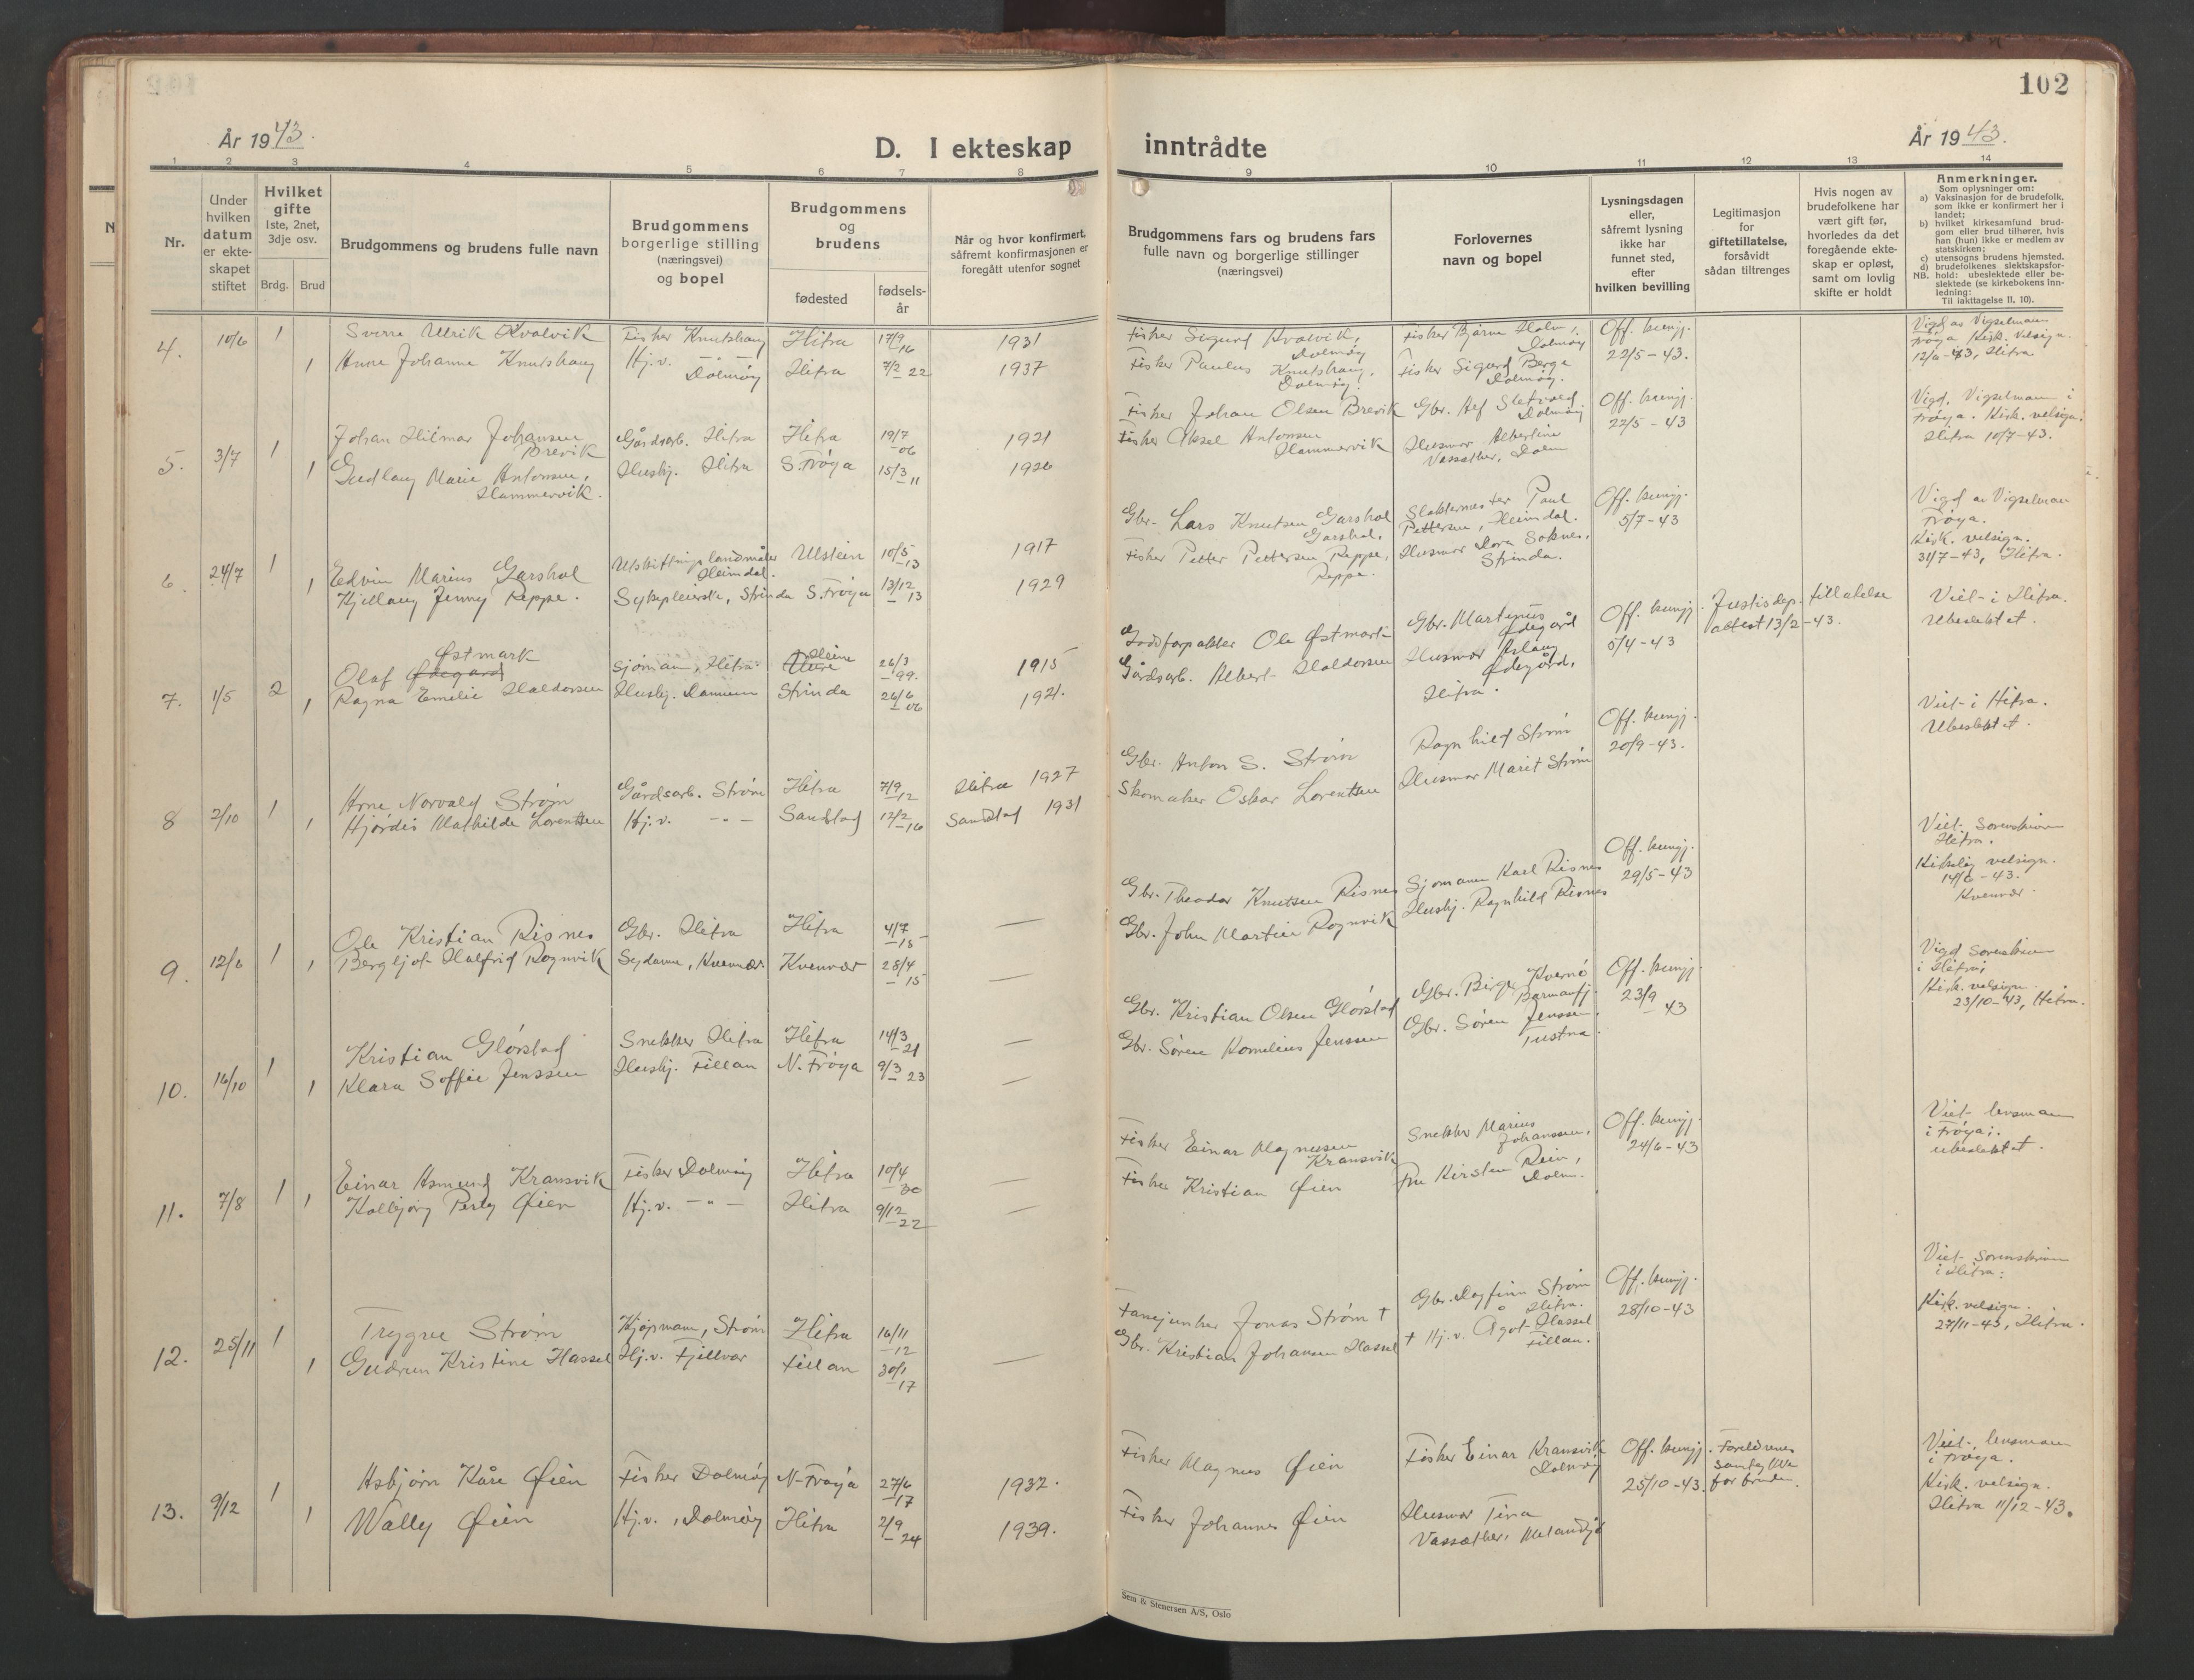 102
År 1943.
D. I ekteskap
inntrådte
År 1943.
1 2 3 4 5 6 7 8 9 10 11 12 13 14
Nr.
Under
hvilken
datum
er ekte-
skapet
stiftet
Hvilket
gifte
1ste, 2net,
3dje osv.
Brdg.
Brud
Brudgommens og brudens fulle navn
Brudgommens
borgerlige stilling
(næringsvei)
og bopel
Brudgommens
og
brudens
fødested
fødsels-
år
Når og hvor konfirmert,
såfremt konfirmasjonen er
foregått utenfor sognet
Brudgommens fars og brudens fars
fulle navn og borgerlige stillinger
(næringsvei)
Forlovernes
navn og bopel
Lysningsdagen
eller,
såfremt lysning
ikke har
funnet sted,
efter
hvilken bevilling
Legitimasjon
for
giftetillatelse,
forsåvidt
sådan tiltrenges
Hvis nogen av
brudefolkene har
vært gift før,
hvorledes da det
foregående ekte-
skap er opløst,
samt om lovlig
skifte er holdt
Anmerkninger.
Som oplysninger om:
a) Vaksinasjon for de brudefolk,
som ikke er konfirmert her i
landet;
b) hvilket kirkesamfund brud-
gom eller brud tilhører, hvis
han (hun) ikke er medlem av
statskirken;
c) utensogns brudens hjemsted.
d) brudefolkenes slektskapsfor-
NB. hold: ubeslektede eller be-
slektede (se kirkebokens inn-
ledning:
Til iakttagelse II, 10).
4. 10/6 1 Sverre Ulrik Kvalvik Fisker Knutshaug Hitra 17/9 16 1931
1 Anne Johanne Knutshaug Hj.v. -"- Dolmøy Hitra 7/2 22 1937
Fisker Sigurd Kvalvik, Dolmøy
Fisker Paulus Knutshaug, Dolmøy.
Fisker Bjarne Holm, Dolmøy
Fisker Sigurd Berge Dolmøy.
Off. kungj.
22/5-43.
Vigd av Vigselmann
Frøya Kirk. Velsign.
12/6-43, Hitra
5. 3/7 1 Johan Hilmar Johansen Brevik Gårdsarb. Hitra Hitra 19/7 06 1921
1 Gudlaug Marie Antonsen, Hammervik. Hushj. Hitra S. Frøya 15/3 11 1926
Fisker Johan Olsen Brevik
Fisker Aksel Antonsen Hammervik
Gbr. Alf Sletvold Dolmøy
Husmor Albertine
Vassæther, Dolm
Off. kungj.
22/5-43
Vigd. Vigselmann i
Frøya. Kirk. velsign.
Hitra 10/7-43.
6. 24/7 1 Edvin Marius Garshol Utskiftningslandmåler Heimdal. Ulstein 10/5 13 1917
1 Kjellaug Jenny Reppe. Sykepleierske, Strinda S. Frøya 13/12 13 1929
Gbr. Lars Knutsen Garshol Garshol.
Fisker Petter Pettersen Reppe, Reppe.
Slaktermester Paul
Pettersen, Heimdal.
Husmor Dora Saknes,
Strinda.
Off. kungj.
5/7-43
Vigd av Vigselman
Frøya.
Kirk. velsign.
31/7-43, Hitra.
7. 1/5 2 Olaf Ødegard Østmark Sjømann, Hitra Heim 26/3 99. 1915
1 Ragna Emelie Haldorsen Hushj. Strinda 26/6 06 1921.
Ole Østmark
Gårdsarb. Albert Haldorsen
Gbr. Martinus
Ødegård
Husmor Aslaug
Ødegård,
Hitra.
Off. kungj.
5/4-43
Justisdep. tillatelse
attest 13/2-43.
Viet i Hitra.
Ubeslektet.
8 2/10 1 Arne Norvald Strøm Gårdsarb. Strøm Hitra 7/9 12 Hitra 1927
1 Hjørdis Mathilde Lorentsen Hj.v. -"- Sandstad 12/2 16 Sandstad 1931
Gbr. Anton S. Strøm
Skomaker Oskar Lorentsen
Ragnhild Strøm
Husmor Marit Strøm
Off. kungj.
20/9-43.
Viet i Hitra.
Ubeslektet.
9. 12/6 1 Ole Kristian Risnes Gbr. Hitra Hitra 4/7 15 —
1 Bergljot Halfrid Rognvik Sydame, Kvenvær Kvenvær 28/4 15 —
Gbr. Theodor Knutsen Risnes
Gbr. John Martin Rognvik
Sjømann Karl Risnes
Hushj. Ragnhild Risnes
Off. kungj.
29/5-43
Viet Sorenskriver
Hitra.
Kirkelig velsign.
14/6-43.
Kvenvær
10. 16/10 1 Kristian Glørstad Snekker Hitra Hitra 14/3 21 —
1 Klara Soffie Jenssen Hushj. Fillan N. Frøya 9/3 23 —
Gbr. Kristian Olsen Glørstad
Gbr. Søren Kornelius Jenssen
Gbr. Birger Kvernø
Barmanfj.
Gbr. Søren Jenssen,
Tustna.
Off. kungj.
23/9 43
Vigd Sorenskriver
i Hitra;
Kirk. velsign.
23/10-43, Hitra.
11. 7/8 1 Einar Asmund Kransvik Fisker Dolmøy Hitra 10/4 20 —
1 Kolbjørg Perly Øien Hj.v. -"- Hitra 9/12 22 —
Fisker Einar Magnusen Kransvik
Fisker Kristian Øien
Snekker Marius
Johanssen,
Fru Kirsten Rein,
Dolm.
Off. kungj.
24/6-43
Viet lensmann
i Frøya;
ubeslektet.
12. 25/11 1 Trygve Strøm Kjøpmann, Strøm Hitra 16/11 12
1 Gudrun Kristine Hassel Hj.v. Fjellvær Fillan 30/1 17 —
Fanejunker Jonas Strøm †
Gbr. Kristian Johansen Hassel
Gbr. Dagfinn Strøm
Hitra.
† Hj.v. Ågot Hassel
Fillan.
Off. kungj.
28/10-43
Viet Sorenskriver
i Hitra:
Kirk. velsign.
27/11-43, Hitra.
13. 9/12 1 Asbjørn Kåre Øien Fisker Dolmøy N-Frøya 27/6 17 1932.
1 Wally Øien Hj.v., Dolmøy Hitra 2/9 24 1939.
Fisker Magnus Øien
Fisker Johannes Øien
Fisker Einar Kransvik
Dolmøy
Husmor Tina
Vassæther, Melandsjø
Off. kungj.
25/10-43.
Foreldrenes
samtykke
for bruden.
Viet lensmann
i Frøya.
Kirk. velsign.
Hitra 11/12-43.
Sem & Stenersen A/S, Oslo